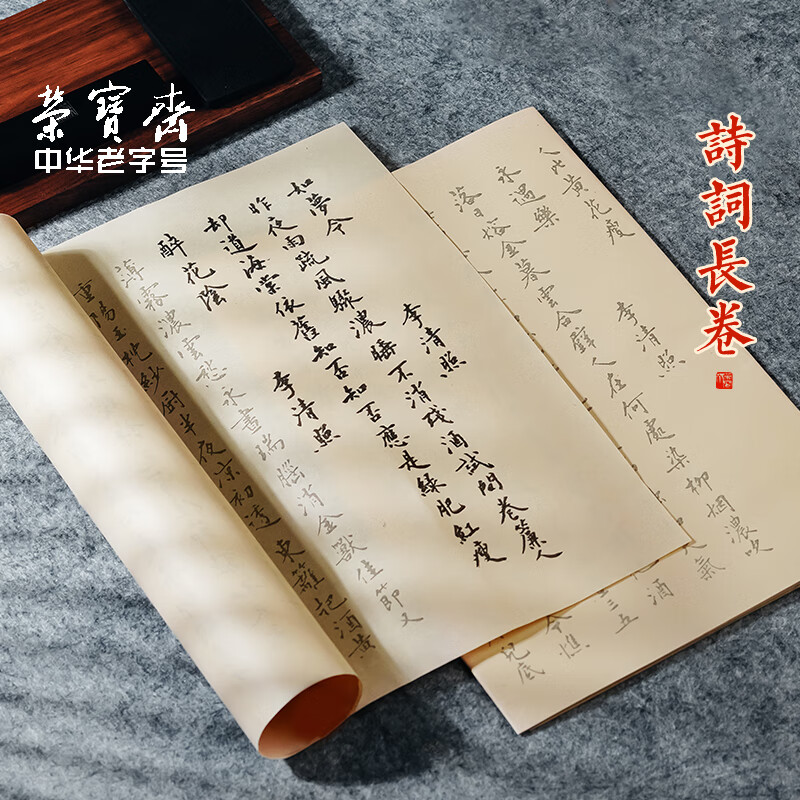 榮寶齋
中华老字号
詩詞長卷
如夢令 李清照
昨夜雨疏風驟濃睡不消残酒試問卷簾人
却道海棠依舊知否知否應是綠肥紅瘦
醉花陰 李清照
薄霧濃雲愁永晝瑞腦消金獸佳節又
重陽玉枕紗厨半夜凉初透東籬把酒黄
人比黄花瘦
永遇樂 李清照
落日熔金暮雲合璧人在何處染柳烟濃吹
天氣
酒
三五
今憔
兒底